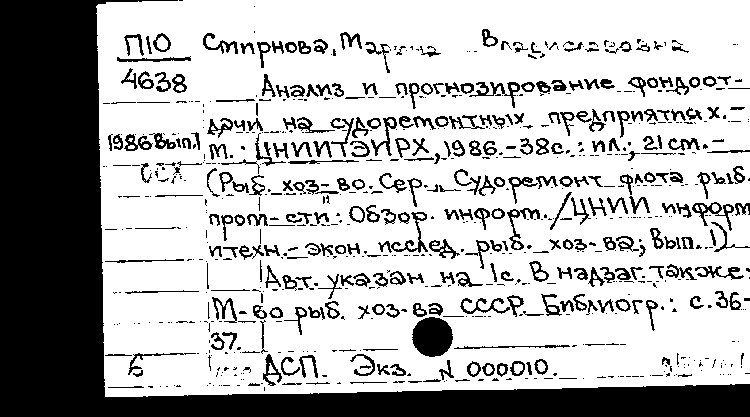 П10 Смирнова, Марина Владиславовна
4638 Анализ и прогнозирование фондоот-
дачи на судоремонтных предприятиях.-
1986 Вып.1 М.: ЦНИИТЭИРХ, 1986.-38с.: ил.; 21 см.-
ОСХ (Рыб. хоз-во. Сер. „Судоремонт флота рыб.
пром-сти": Обзор. информ. /ЦНИИ информ
и техн.-экон. исслед. рыб. хоз-ва; Вып. 1)
Авт. указан на 1с. В надзаг. также:
М-во рыб. хоз-ва СССР. Библиогр.: с.36-
37.
Б ДСП. Экз. N 000010.